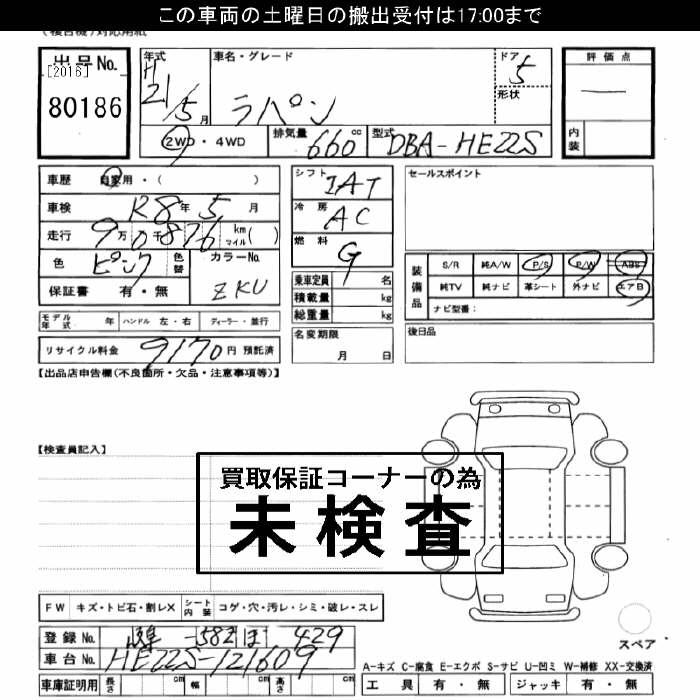 この車両の土曜日の搬出受付は17:00まで
(複合機)対応用紙
出品No.
[2016]
80186
年式 H21/5月
車名・グレード
ラパン
ドア 5
形状
評価点
内装
2WD・4WD
排気量 660cc
型式 DBA-HE22S
車歴 自家用・( )
車検 R8年5月
走行 9万0千876 km マイル( )
色 ピンク 色替
カラーNo. ZKU
保証書 有・無
モデル年式 年 ハンドル 左・右 ディーラー・並行
リサイクル料金 9170円 預託済
シフト IAT
冷房 AC
燃料 G
乗車定員 名
積載量 kg
総重量 kg
名変期限
月 日
セールスポイント
装備品
S/R 純A/W P/S P/W ABS
純TV 純ナビ 革シート 外ナビ エアB
ナビ型番:
後日品
【出品店申告欄(不良箇所・欠品・注意事項等)】
【検査員記入】
買取保証コーナーの為
未検査
FW キズ・トビ石・割レX シート内装 コゲ・穴・汚レ・シミ・破レ・スレ
登録No. 582 429
車台No. HE22S-121609
車庫証明用 長さ cm 幅 cm 高さ cm
スペア
A-キズ C-腐食 E-エクボ S-サビ U-凹ミ W-補修 XX-交換済
工具 有・無 ジャッキ 有・無